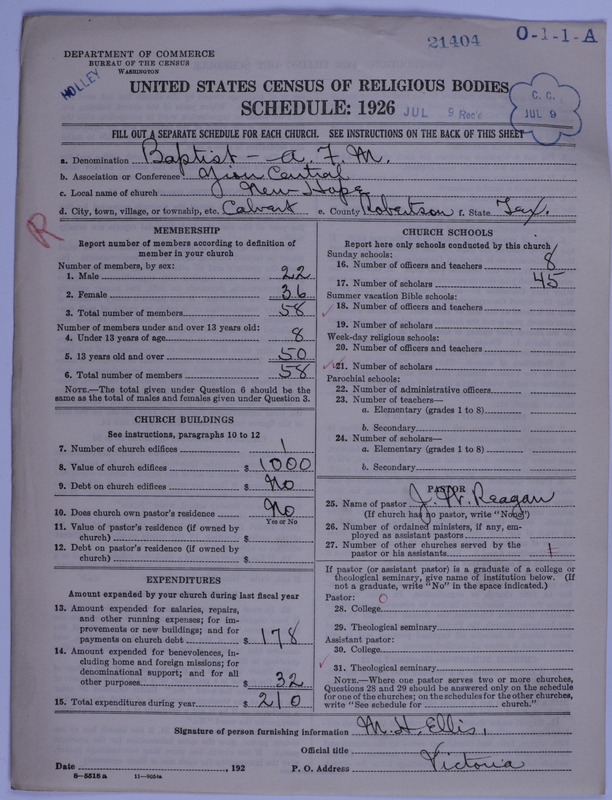 21404 O-1-1-A
DEPARTMENT OF COMMERCE
BUREAU OF THE CENSUS
WASHINGTON
HOLLEY
UNITED STATES CENSUS OF RELIGIOUS BODIES
SCHEDULE: 1926
JUL 9 Rec'd
C. C.
JUL 9
FILL OUT A SEPARATE SCHEDULE FOR EACH CHURCH. SEE INSTRUCTIONS ON THE BACK OF THIS SHEET
a. Denomination Baptist - A. F. M.
b. Association or Conference Zion Central
c. Local name of church New Hope
d. City, town, village, or township, etc. Calvert e. County Robertson f. State Tex.
R
MEMBERSHIP
Report number of members according to definition of
member in your church
Number of members, by sex:
1. Male 22
2. Female 36
3. Total number of members 58
Number of members under and over 13 years old:
4. Under 13 years of age 8
5. 13 years old and over 50
6. Total number of members 58
NOTE.—The total given under Question 6 should be the
same as the total of males and females given under Question 3.
CHURCH BUILDINGS
See instructions, paragraphs 10 to 12
7. Number of church edifices 1
8. Value of church edifices $ 1000
9. Debt on church edifices $ No
10. Does church own pastor's residence No
Yes or No
11. Value of pastor's residence (if owned by
church) $
12. Debt on pastor's residence (if owned by
church) $
EXPENDITURES
Amount expended by your church during last fiscal year
13. Amount expended for salaries, repairs,
and other running expenses; for im-
provements or new buildings; and for
payments on church debt $ 178
14. Amount expended for benevolences, in-
cluding home and foreign missions; for
denominational support; and for all
other purposes $ 32
15. Total expenditures during year $ 210
CHURCH SCHOOLS
Report here only schools conducted by this church
Sunday schools:
16. Number of officers and teachers 8
17. Number of scholars 45
Summer vacation Bible schools:
18. Number of officers and teachers
19. Number of scholars
Week-day religious schools:
20. Number of officers and teachers
21. Number of scholars
Parochial schools:
22. Number of administrative officers
23. Number of teachers—
a. Elementary (grades 1 to 8)
b. Secondary
24. Number of scholars—
a. Elementary (grades 1 to 8)
b. Secondary
PASTOR
25. Name of pastor J. W. Reagan
(If church has no pastor, write "None")
26. Number of ordained ministers, if any, em-
ployed as assistant pastors
27. Number of other churches served by the
pastor or his assistants 1
If pastor (or assistant pastor) is a graduate of a college or
theological seminary, give name of institution below. (If
not a graduate, write "No" in the space indicated.)
Pastor: 0
28. College
29. Theological seminary
Assistant pastor:
30. College
31. Theological seminary
NOTE.—Where one pastor serves two or more churches,
Questions 28 and 29 should be answered only on the schedule
for one of the churches; on the schedules for the other churches,
write "See schedule for church."
Signature of person furnishing information M. H. Ellis,
Official title
Date , 192 P. O. Address Victoria
8—5515 a 11—9054a